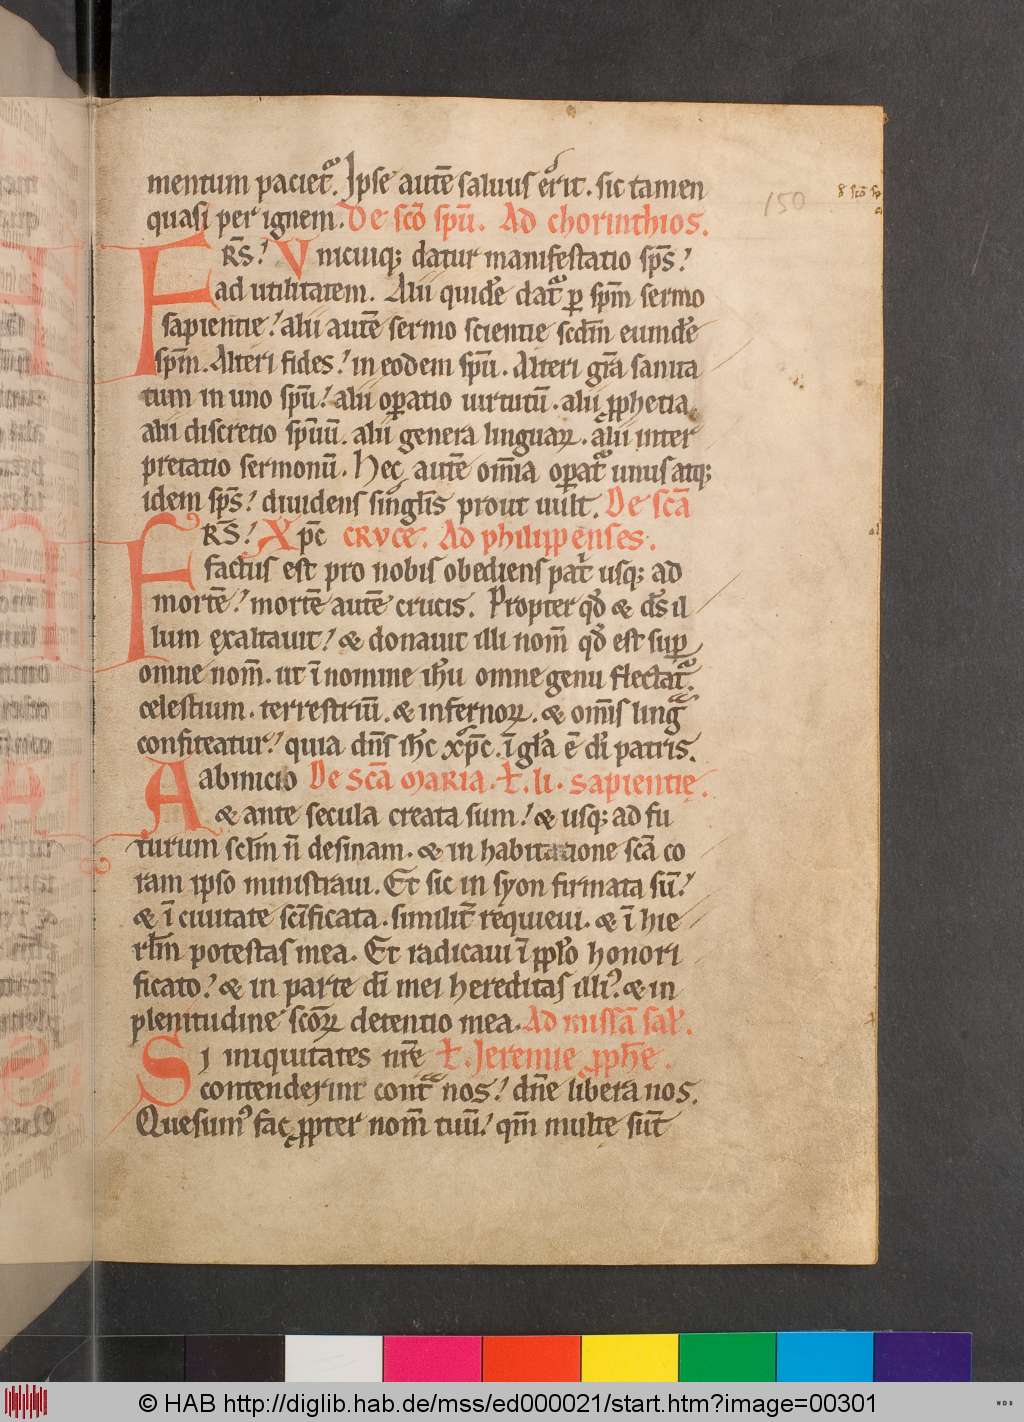 mentum paciet᷑. Ipse autē saluus er̄it. sic tamen
quasi per ignem. De scō spū. Ad chorinthios.
FRS! Vnicuiq; datur manifestatio sp̄s!
ad utilitatem. Alii quidē dat᷑ p̱ spm̄ sermo
sapientie! alii autē sermo scientie scdm̄ eundē
spm̄. Alteri fides! in eodem spū. Alteri grā sanita
tum in uno spū! alii op̱atio uirtutū. alii ꝓphetia
alii discretio spūū. alii genera linguaꝝ. alii inter
pretatio sermonū. Hec autē om̄ia op̱at᷑ unus atq;
idem sp̄s! diuidens singl̄is prout uult. De scā
FRS! Xpc̄ cruce. Ad philippenses.
factus est pro nobis obediens pat᷑ usq; ad
mortē! mortē autē crucis. Propter qd̄ & ds̄ il
lum exaltauit! & donauit illi nom̄ qd̄ est sup̱
omne nom̄. ut ī nomine ih̄u omne genu flectat᷑.
celestium. terrestriū. & infernoꝝ. & om̄is lingᷓ
confiteatur! quia dn̄s ih̄c xp̄c. ī gl̄a ē dī patris.
Ab inicio De scā maria. ł. li. sapientie.
& ante secula creata sum! & usq; ad fu
turum scl̄m n̄ desinam. & in habitatione scā co
ram ipso ministraui. Et sic in syon firmata sū!
& ī ciuitate scīficata. similit᷑ requieui. & ī hie
rl̄m potestas mea. Et radicaui ī ppl̄o honori
ficato! & in parte dī mei hereditas illi᷒. & in
plenitudine scōꝝ detentio mea. Ad missā sal̄.
Si iniquitates nr̄e ł. Jeremie ꝓphē.
contenderint cont᷑ nos! dn̄e libera nos.
Quesum᷒ fac ꝓpter nom̄ tuū! qm̄ multe sūt
150
© HAB http://diglib.hab.de/mss/ed000021/start.htm?image=00301